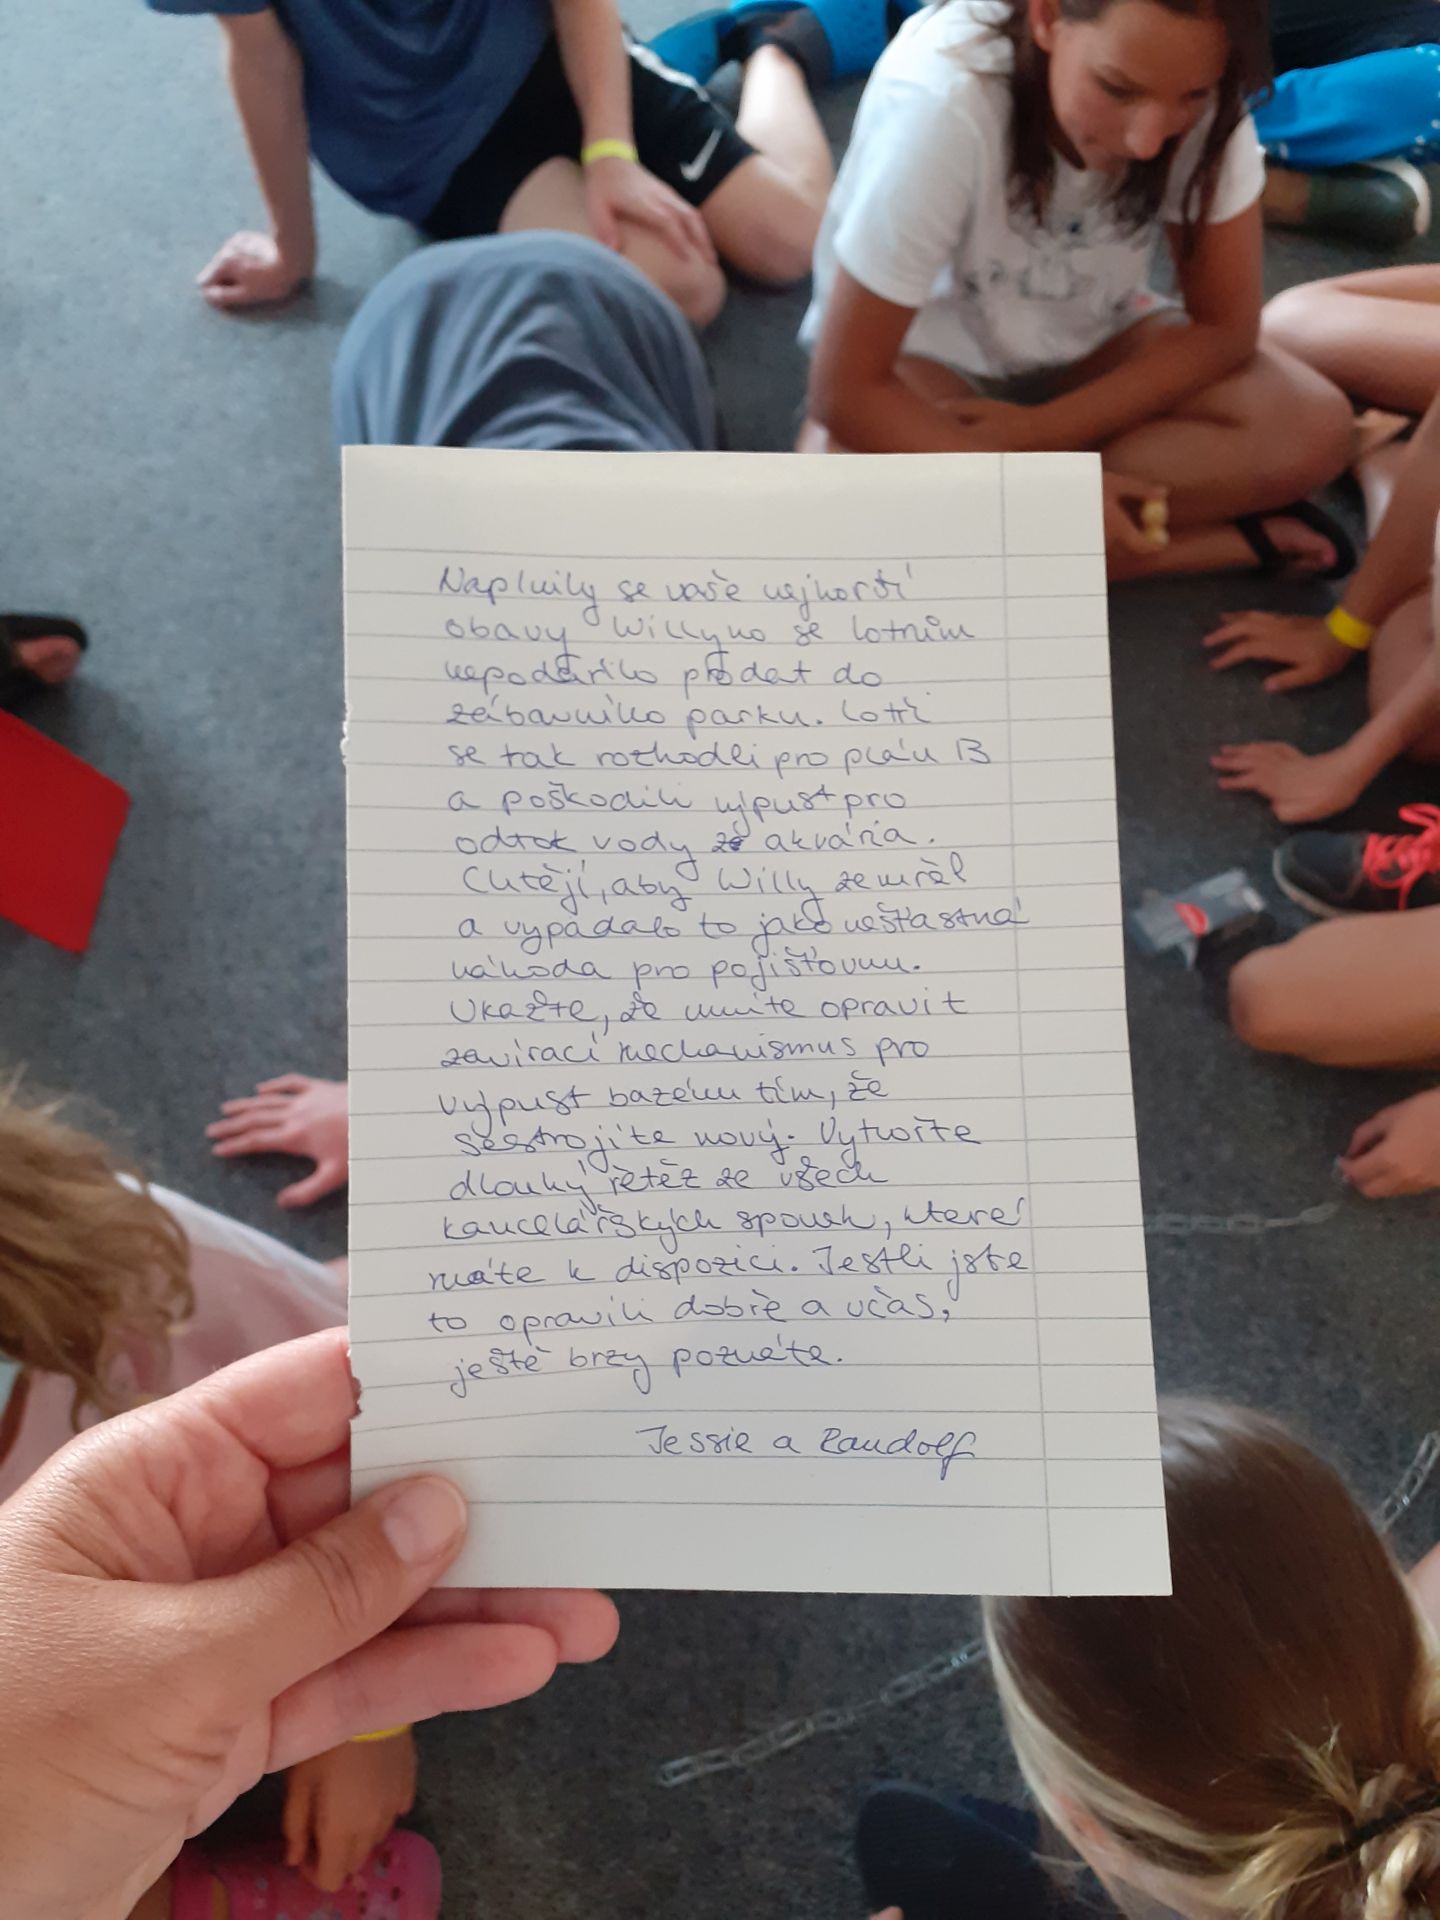 Naplnily se vaše nejhorší
obavy Willyho se lotrům
nepodařilo prodat do
zábavního parku. Lotři
se tak rozhodli pro plán B
a poškodili výpust pro
odtok vody ze akvária.
Chtějí, aby Willy zemřel
a vypadalo to jako nešťastná
náhoda pro pojišťovnu.
Ukažte, že umíte opravit
zavírací mechanismus pro
výpust bazénu tím, že
sestrojíte nový. Vytvořte
dlouhý řetěz ze všech
kancelářských sponek, které
máte k dispozici. Jestli jste
to opravili dobře a včas,
ještě brzy poznáte.
Jessie a Randolf